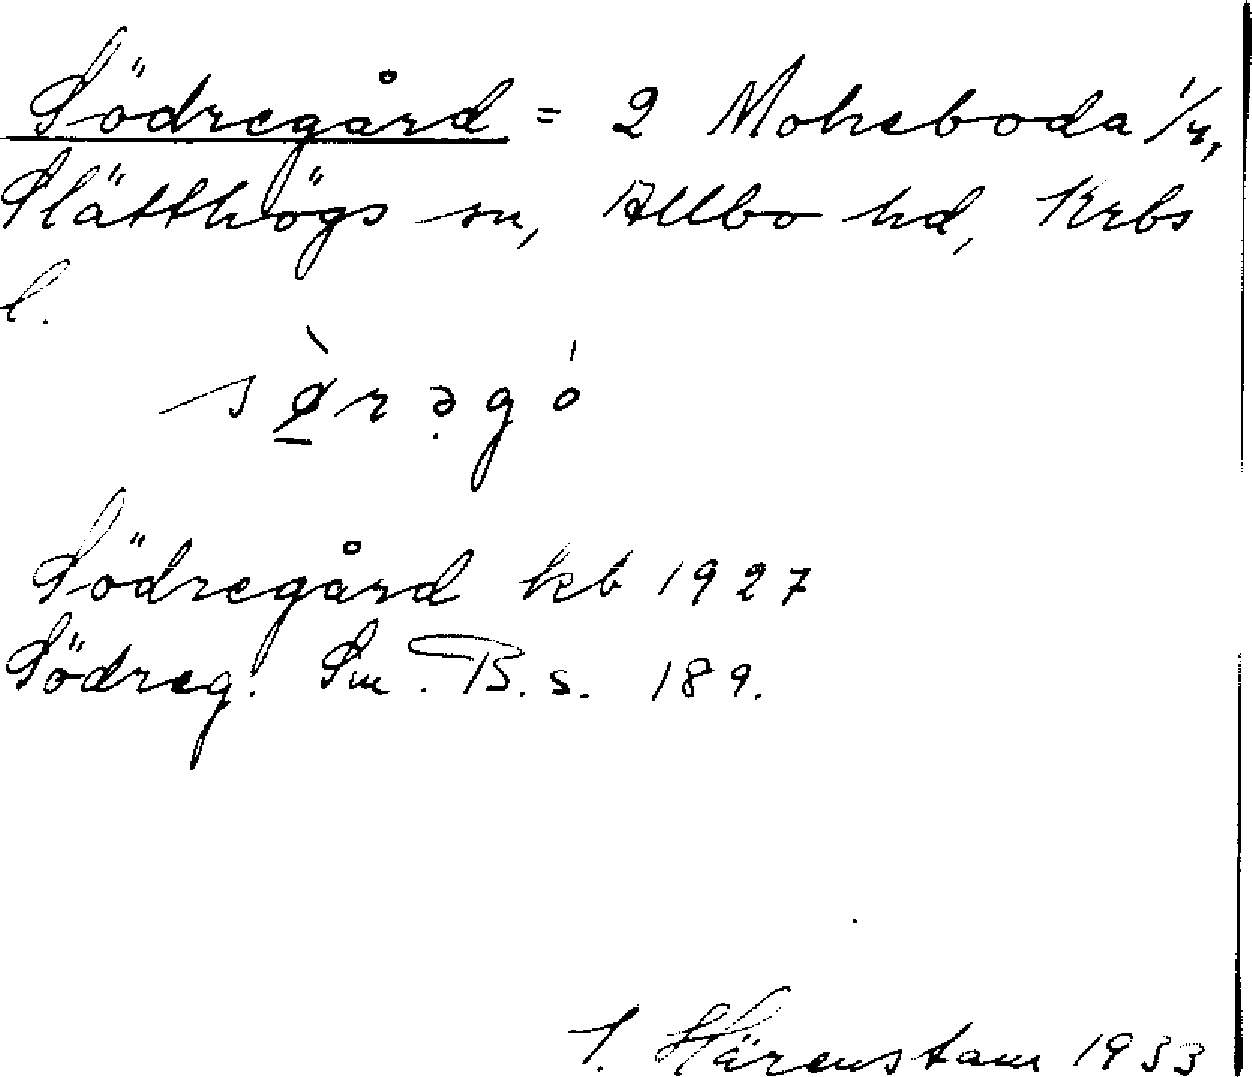 Södregård = 2 Moheboda 1/4,
Slätthögs sn, Allbo hd, Krbs
l.
sø̱̀rəgó
Södregård kb 1927
Södreg. Sm. B. s. 189.
Härenstam 1933